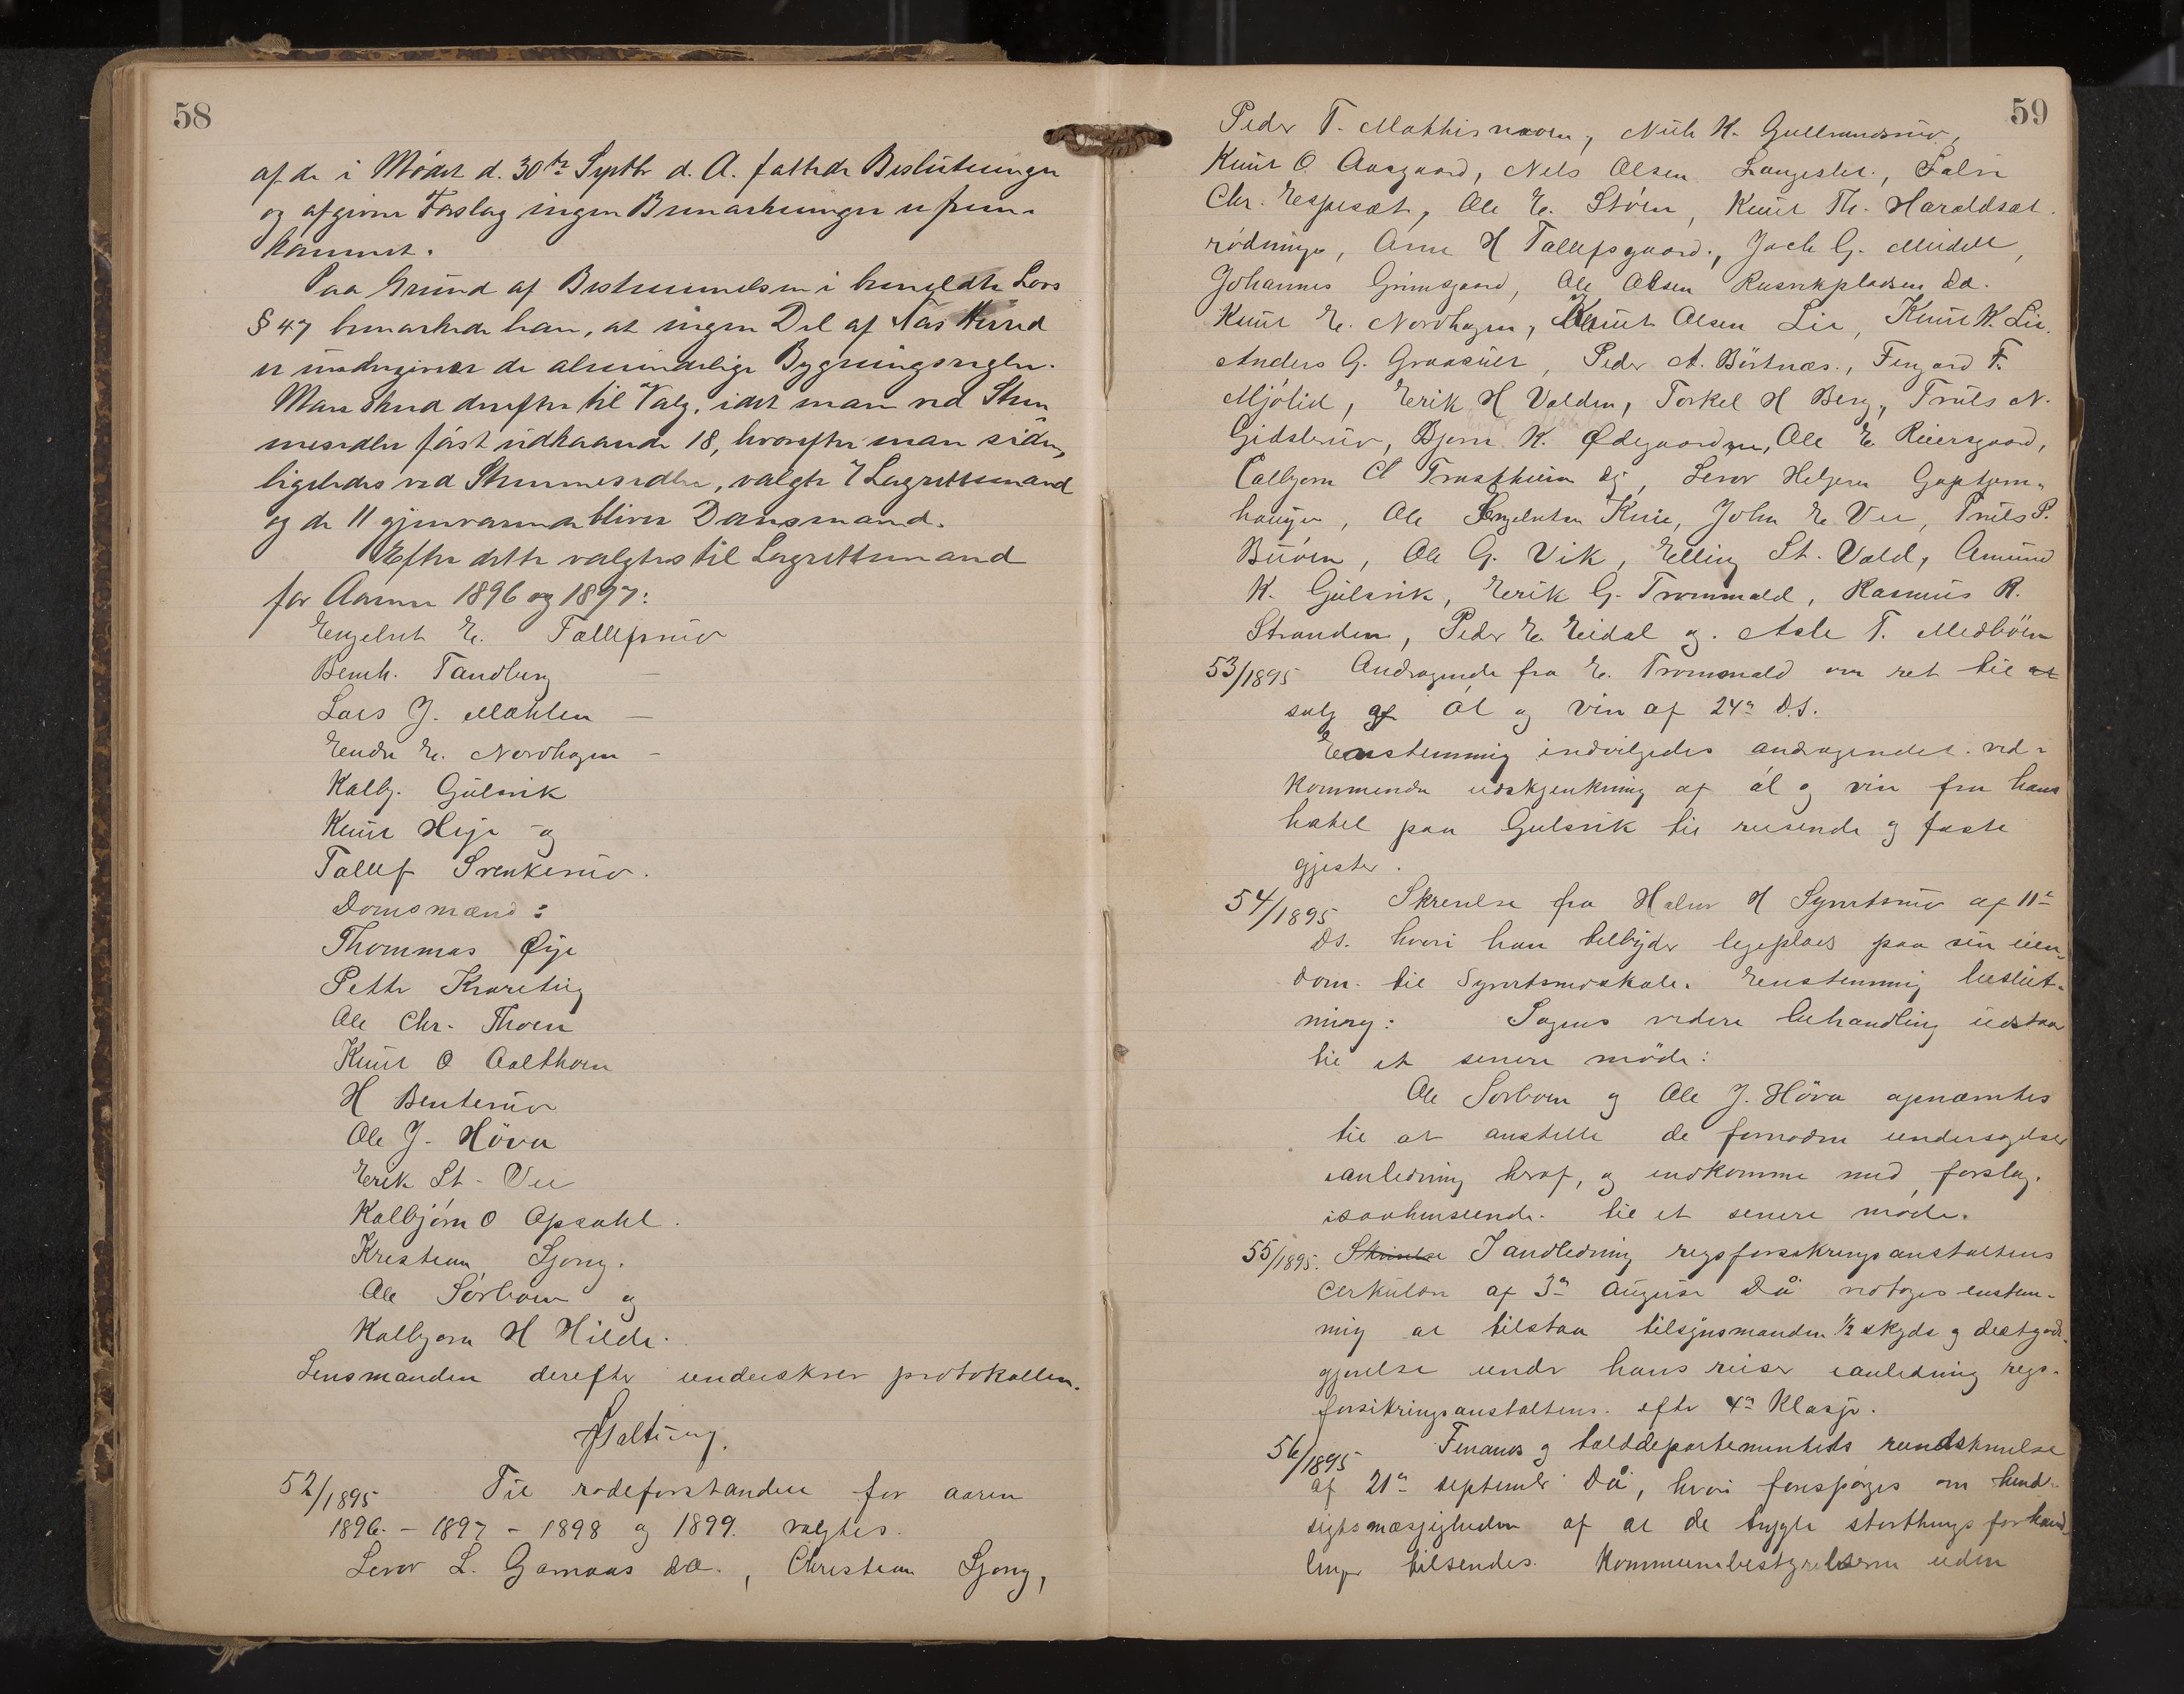 58
af de i Mødet d. 30te Septbr d. A. fattede Beslutninger
og afgivne Forslag ingen Bemærkninger er frem-
kommet.
Paa Grund af Bestemmelsen i bemeldte Lovs
§ 47 bemærkede han, at ingen Del af Næs Herred
er undergivet de almindelige Bygningsregler.
Man skred derefter til Valg, idet man ved Stem
mesedler først udkaarede 18, hvorefter man siden,
ligeledes ved Stemmesedler, valgte 7 Lagrettemænd
og de 11 gjenværende bliver Domsmænd.
Efter dette valgtes til Lagrettemænd
for Aarene 1896 og 1897:
Engebret E. Tollefsrud
Bernh. Tandberg —
Lars J. Mohlen —
Endre E. Nordhagen —
Kolbj. Gulsvik
Knut Heje og
Tollef Svenkerud.
Domsmænd:
Thommas Øye
Petter
Ole Chr. Thoen
Knut O
H Benterud
Ole J. Høva
Erik St. Vee
Kolbjørn O Opsahl.
Kristian Ljong.
Ole Sørbøen og
Kolbjørn H Hilde.
Lensmanden derefter underskrev protokollen.
52/1895 Til rodeforstandere for aaren
1896 - 1897 - 1898 og 1899. valgtes.
Levor L. Garnaas da., Christian Ljong,
59
Peder T. Mathis, Nils H. Gulbrandsrud,
Knut O. Aasgaard, Nels Olsen,
Chr. Espeset, Ole E. Støen, Knut Th. Haraldset
rødninge, Arne H Tollefsgaard, Jack G. Meidell,
Johannes Grimsgaard, Ole Olsen Rusvikpladsen da.
Knut E. Nordhagen, Knut Olsen Lie, Knut K. Lie.
Anders G. Graasuer, Peder A. Børtnæs., Fingard F.
Mjølid, Erik H Volden, Torkel H Berg, Truls N.
Gidslerud, Bjørn K. Ødegaarden, Ole E. Reiersgaard,
Kolbjørn dy, Levor Helgesen Goptjern-
haugen, Ole Engebretsen, John E. Vee, Truls P.
Buøen, Ole G. Vik, Elling St. Vold, Amund
K. Gulsvik, Erik G. Trommald, Rasmus R.
Stranden, Peder E. Eidal og. Asle T. Medbøen
53/1895 Andragende fra E. Trommald om ret til at
salg af øl og vin af 24de d.s.
Enstemmig indvilgedes andragendet. ved-
kommende udskjenkning af øl og vin fra hans
hotel paa Gulsvik til reisende og faste
gjester.
54/1895 Skrivelse fra Halvor H Synvetsrud af 11te
ds. hvori han tilbyder legeplads paa sin eien-
dom. til Synvetsrudskole. Enstemmig beslut-
ning: Sagens videre behandling udstaar
til et senere møde:
Ole Sørbøen og Ole J. Høva opnævntes
til at anstelle de fornødne undersøgelser
ianledning hraf, og indkomme med forslag.
isaahenseende. til et senere møde.
55/1895. Skrivelse I andledning rigsforsikringsanstaltens
cirkulær af 3de August d.å vedtoges enstem-
mig at tilstaa tilsynsmanden 1/2 skyds og diætgodt-
gjørelse under hans reiser ianledning rigs-
forsikringsanstaltens. efter 4de Klasse.
56/1895 Finans og tolddepartementets rundskrivelse
af 21de september d.å, hvori forespørges om hend-
sigtsmæssigheden af at de trygte storthings forhand-
linger tilsendes. Kommunebestyrelserne uden